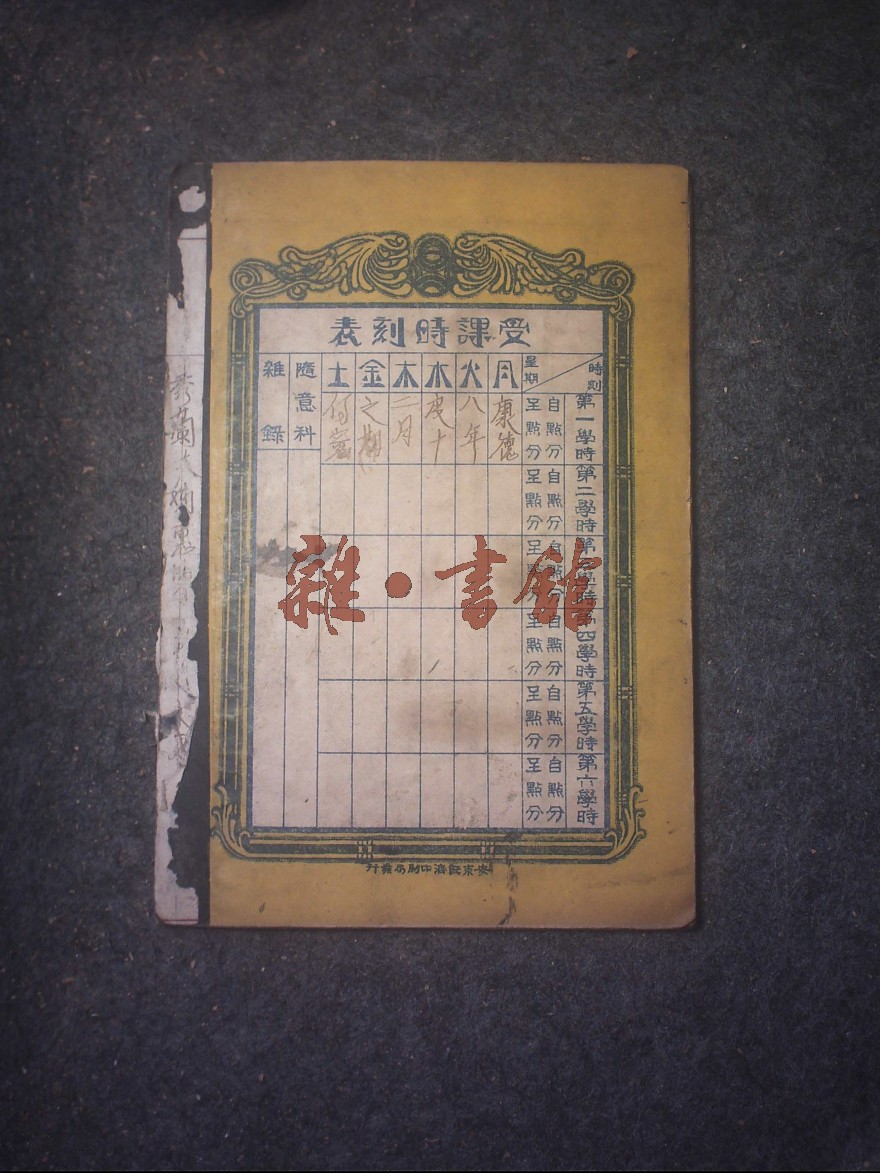 受課時刻表
時刻
星期
月
火
水
木
金
土
隨意科
雜錄
第一學時
自點分
至點分
第二學時
自點分
至點分
第三學時
自點分
至點分
第四學時
自點分
至點分
第五學時
自點分
至點分
第六學時
自點分
至點分
康德
八年
度十
二月
之
雜·書館